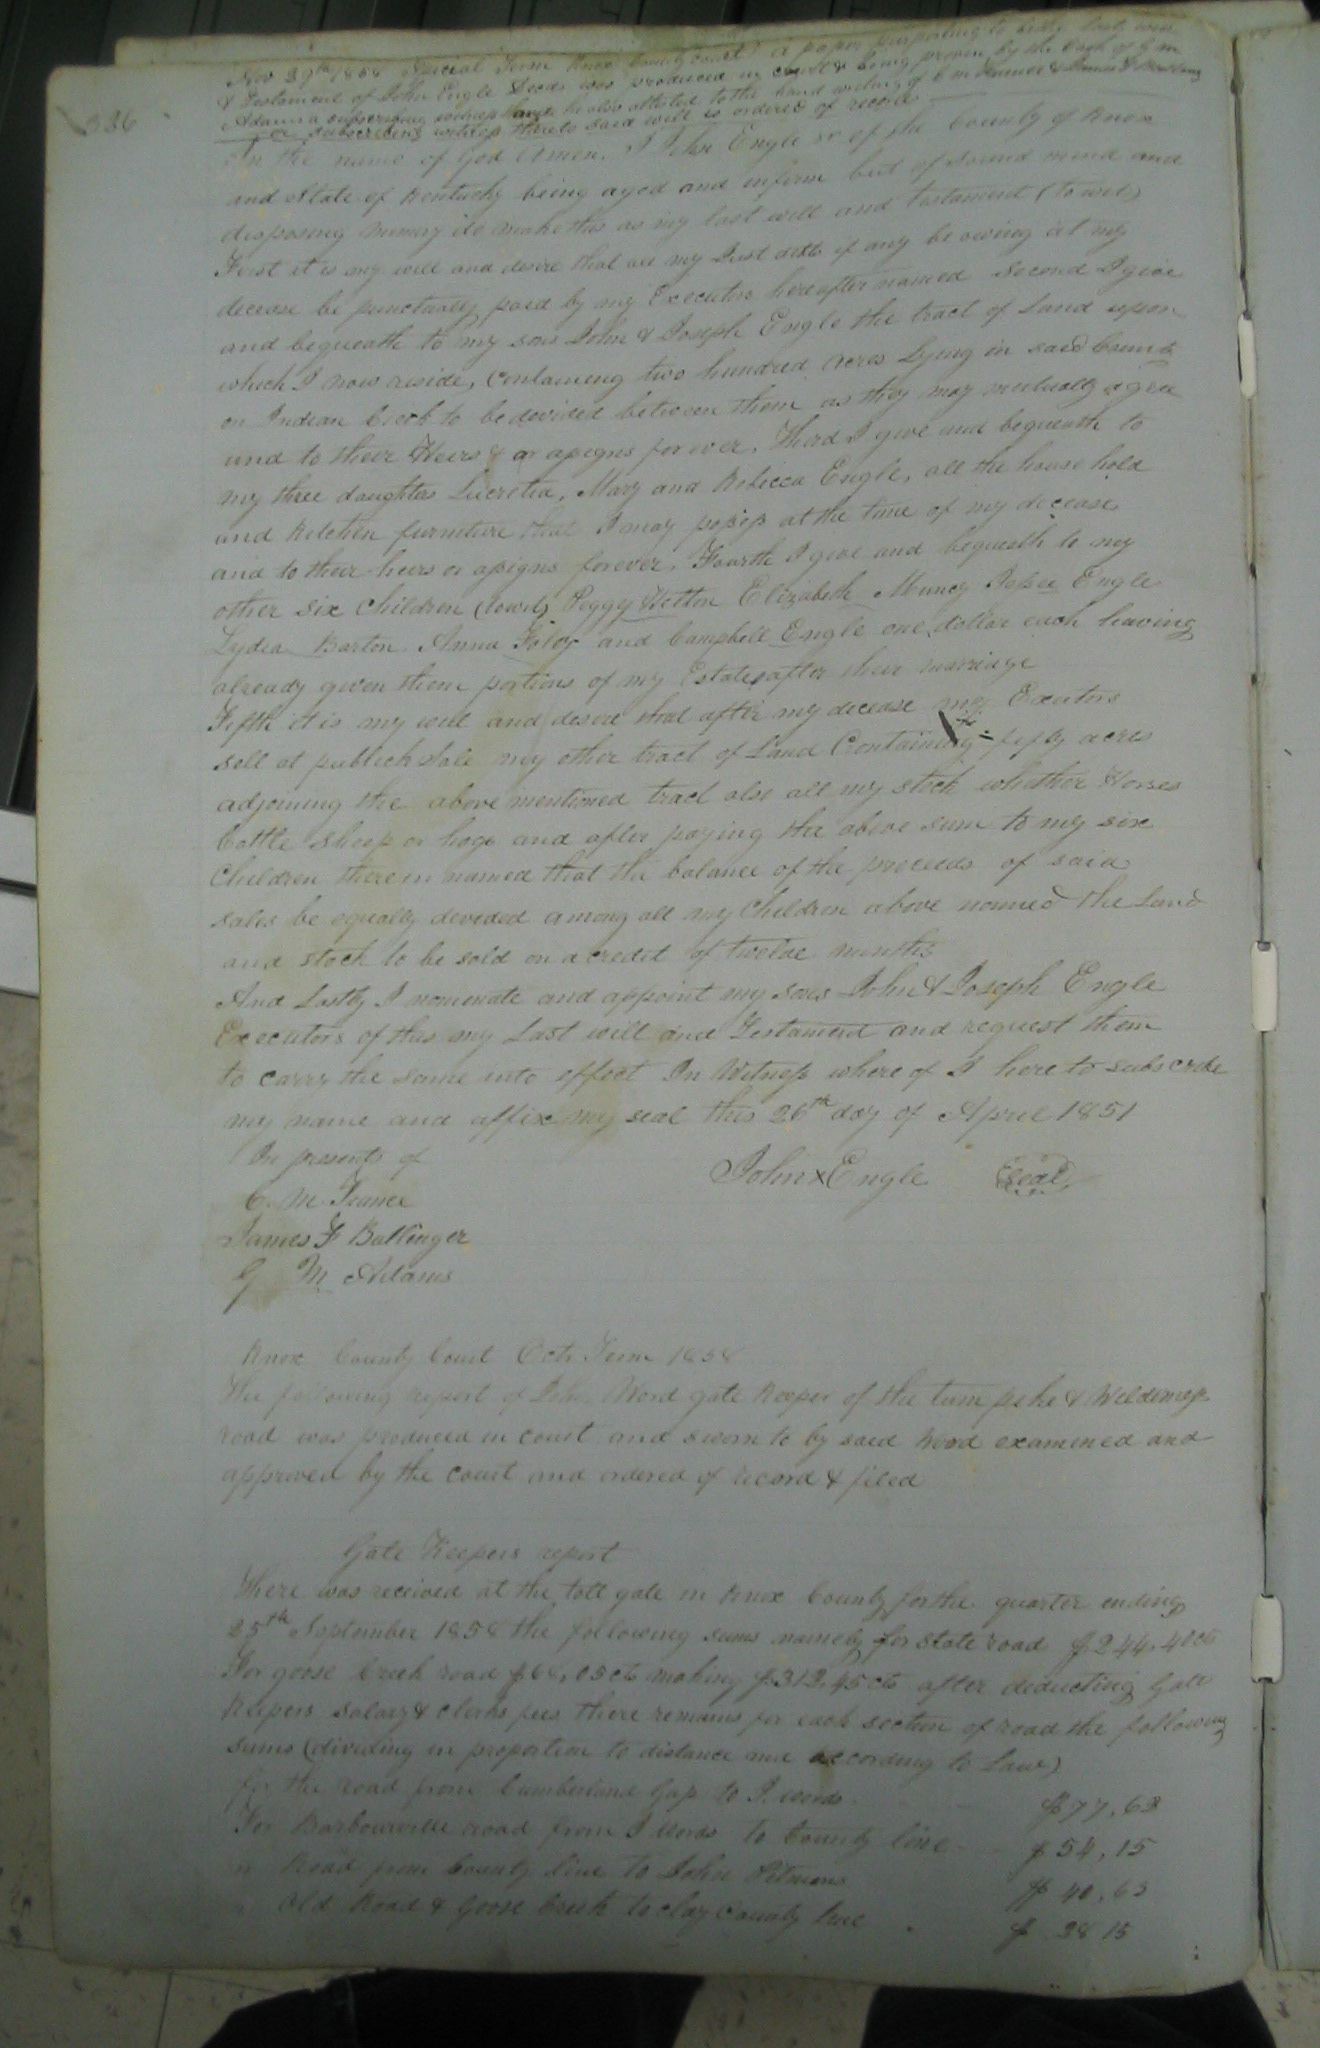 336
Nov 29th 1858 Special Term Knox County Court a paper purporting to be the last will
& Testament of John Engle Decd was produced in court & being proven by the oath of G M
Adams a subscribing witness thereto he also attested to the hand writing of C M & James F
subscribing witness thereto said will is ordered of record
In the name of God Amen. I John Engle sr of the County of Knox
and State of Kentucky being aged and infirm but of sound mind and
disposing memory do make this as my last will and testament (to wit)
First it is my will and desire that all my Just debts if any be owing at my
decease be punctually paid by my Executors hereafter named Second I give
and bequeath to my sons John & Joseph Engle the tract of Land upon
which I now reside, Containing two hundred acres Lying in said County
on Indian Creek to be devided between them as they may mutually agree
and to their Heirs & or assigns forever. Third I give and bequeath to
my three daughters Lucretia, Mary and Rebecca Engle, all the house hold
and Kitchen furniture that I may possess at the time of my decease
and to their heirs or assigns forever. Fourth I give and bequeath to my
other six Children (towit) Peggy Elizabeth Muncy Engle
Lydia Barton Anna Foley and Campbell Engle one dollar each having
already given them portions of my Estate after their marriage
Fifth it is my will and desire that after my decease my Exutors
sell at publick Sale my other tract of Land Containing fifty acres
adjoining the above mentioned tract also all my stock whether Horses
Cattle Sheep or hogs and after paying the above sum to my six
Children therein named that the balance of the proceeds of said
sales be equally devided among all my Children above named the Land
and stock to be sold on a credit of twelve months
And Lastly I nominate and appoint my sons John & Joseph Engle
Executors of this my Last will and Testament and request them
to carry the same into effect In Witness where of I here to subscribe
my name and affix my seal this 26th day of April 1851
In presents of
John x Engle Seal
C. M.
James F Ballinger
G M Adams
Knox County Court Octr Term 1858
The following report of John Word gate Keeper of the turn pike & Wilderness
road was produced in court and sworn to by said Word examined and
approved by the court and ordered of record & filed
Gate Keepers report
There was received at the toll gate in Knox County for the quarter ending
25th September 1858 the following sums namely for State road $244,40cts
For goose Creek road $68,05cts making $312,45cts after deducting Gate
Keepers Salary & clerks fees there remains for each section of road the following
sums (dividing in proportion to distance and according to Law)
for the road from Cumberland Gap to J. Words $77,63
For Barbourville road from J Words to County line $54,15
Road from County line to John Pitmans $40,63
Old Road & Goose Creek to Clay County line $28 15